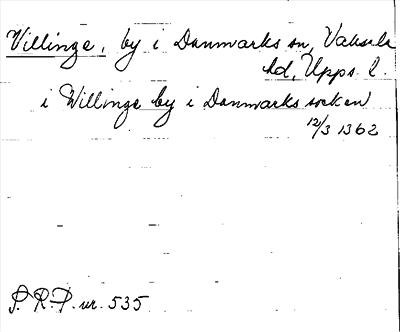 Villinge, by i Danmarks sn, Vaksala
hd, Upps. l.
i Willinge by i Danmarks socken
12/3 1362
S. R. P. nr. 535